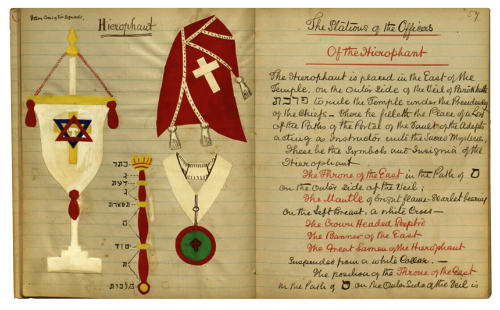 Hierophant
כתר
דעת
תפארת
יסוד
מלכות
The Stations of the Officers
Of the Hierophant
The Hierophant is placed in the East of the
Temple, on the Outer Side of the Veil of
פרכת to rule the Temple under the Presidency
of the Chiefs – there he filleth the Place of a Lord
of the Paths of the Portal of the Vault of the Adepts
acting as Instructor unto the Sacred Mysteries.
These be the Symbols and Insignia of the
Hierophant
The Throne of the East in the Path of ס
on the Outer Side of the Veil;
The Mantle of bright flame-Scarlet bearing
on the Left Breast, a white Cross—
The Crown Headed Sceptre
The Banner of the East
The Great Lamen of the Hierophant
Suspended from a white Collar.—
The position of the Throne of the East
in the Path of ס on the Outer Side of the Veil is